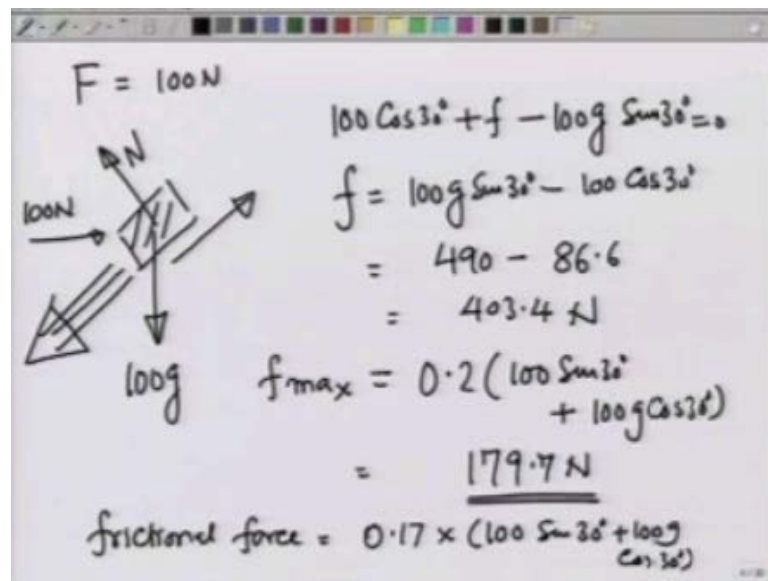 F = 100N
100 Cos30° + f − 100g Sin30° = 0
N
100N
f = 100g Sin30° − 100 Cos30°
= 490 − 86.6
= 403.4 N
100g
fmax = 0.2 ( 100 Sin30°
+ 100g Cos30°)
= 179.7 N
frictional force = 0.17 × (100 Sin 30° + 100g
Cos 30°)